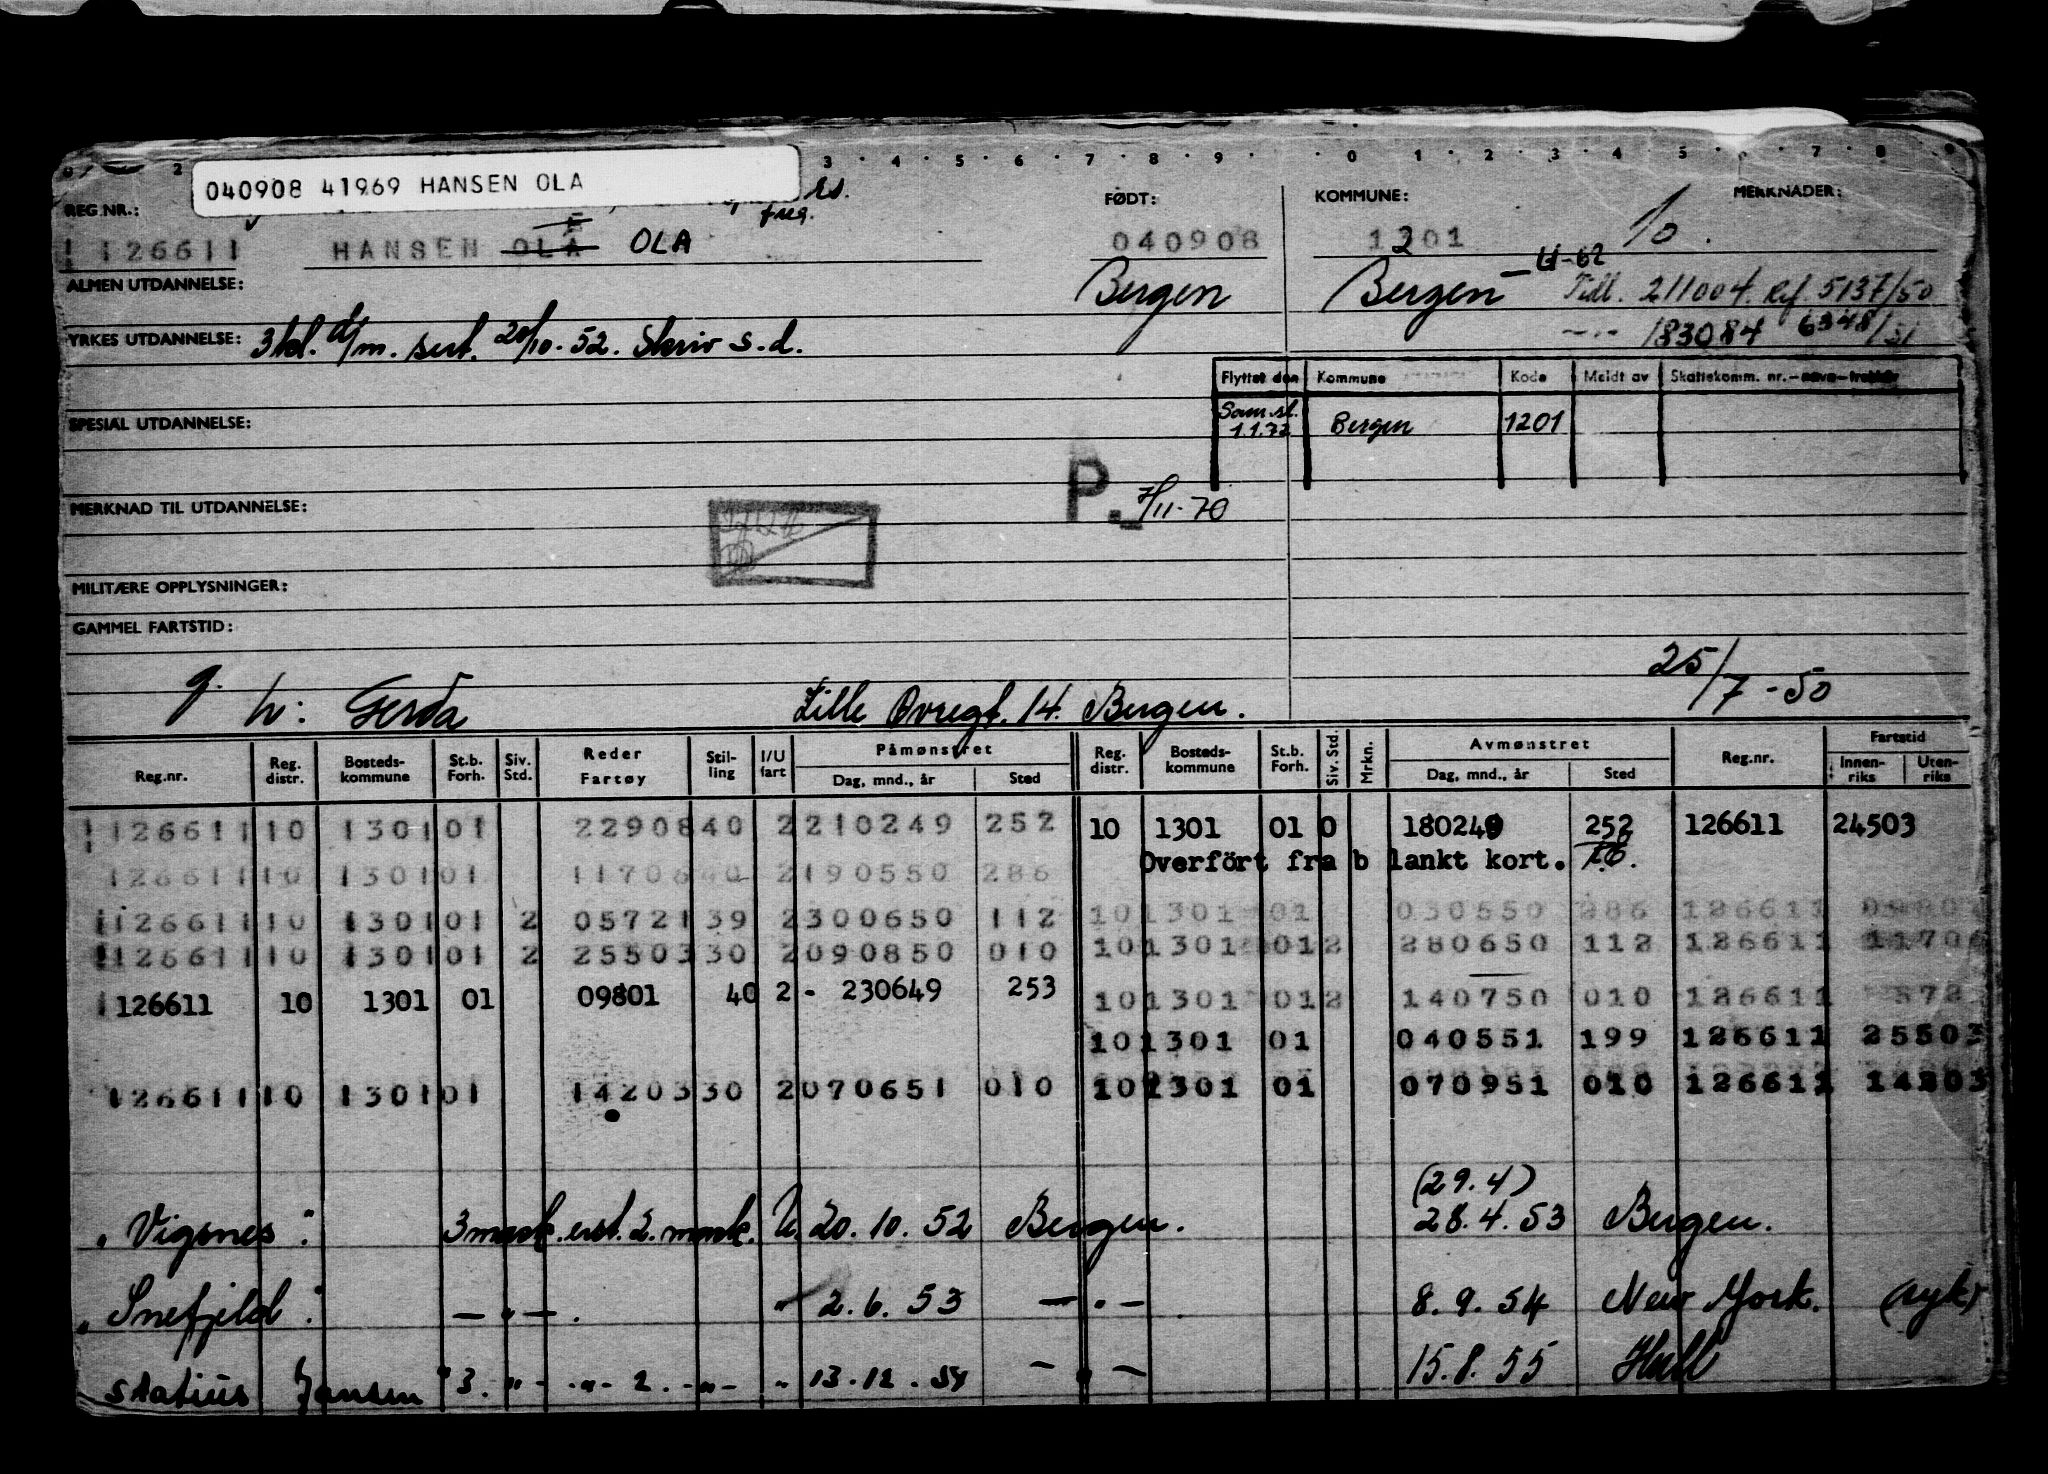 2 3 4 5 6 7 8 9 0 1 2 3 4 5 6 7 8 9
040908 41969 HANSEN OLA
freg.
REG.NR.: FØDT: KOMMUNE: MERKNADER:
126611 HANSEN OLA OLA 040908 1201
ALMEN UTDANNELSE: Bergen Bergen - U-62 Tidl. 211004. Ref. 5137/50
YRKES UTDANNELSE: 3 kl. d/m. sert. 20/10-52. Skriv s.d. 183084 6348/51
Flyttet den Kommune Kode Meldt av Skattekomm. nr.
Sam.sl. 1.1.72 Bergen 1201
SPESIAL UTDANNELSE:
P. 7/11-70
MERKNAD TIL UTDANNELSE:
MILITÆRE OPPLYSNINGER:
GAMMEL FARTSTID:
25/7-50
g. h: Gerda Lille Øvregt. 14. Bergen.
Reg.nr. Reg. distr. Bosteds-kommune St.b. Forh. Siv. Std. Reder Fartøy Stil-ling I/U fart Påmønstret Dag, mnd., år Sted Reg. distr. Bosteds-kommune St.b. Forh. Siv. Std. Mrkn. Avmønstret Dag, mnd., år Sted Reg.nr. Fartstid Innen-riks Uten-riks
126611 10 1301 01 22908 40 2 210249 252 10 1301 01 0 180249 252 126611 24503
Overfört fra b lankt kort.
126611 10 1301 01 11706 40 2 190550 286
126611 10 1301 01 2 05721 39 2 300650 112 10 1301 01 030550 286 126611
126611 10 1301 01 2 25503 30 2 090850 010 10 1301 01 2 280650 112 126611 11706
126611 10 1301 01 09801 40 2 - 230649 253 10 1301 01 2 140750 010 126611 572
10 1301 01 040551 199 126611 25503
126611 10 1301 01 14203 30 2 070651 010 10 1301 01 070951 010 126611 14203
(29.4)
"Vigsnes". 3 mask. erst. 2. mask. U. 20.10.52 Bergen. 28.4.53 Bergen.
"Snefjeld". — " — . " 2.6.53 — " — 8.9.54 New York. (syk)
Statius Jansen" 3. " - - " - 2. - " - " 13.12.54 — " — 15.8.55 Hull